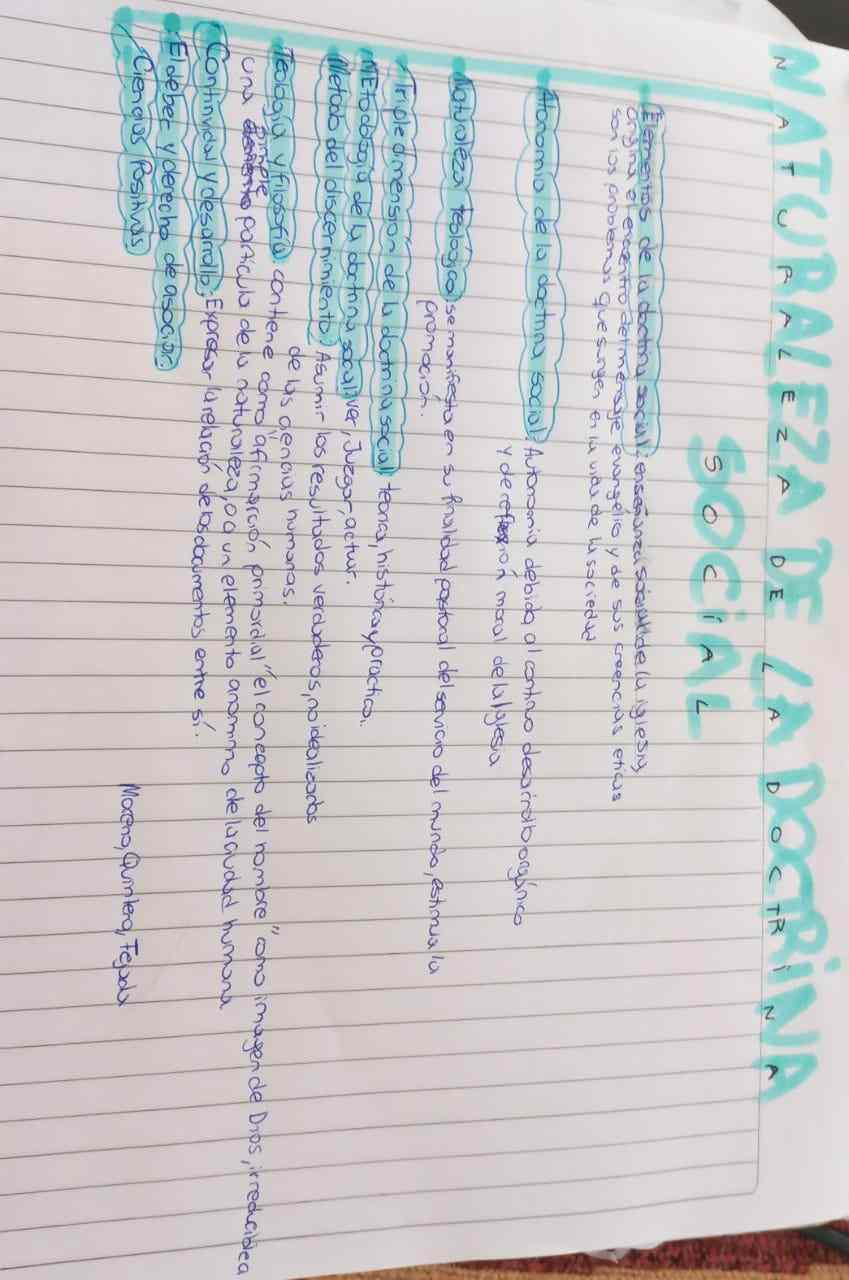 NATURALEZA DE LA DOCTRINA
NATURALEZA DE LA DOCTRINA
SOCIAL
SOCIAL
Elementos de la doctrina social: enseñanza social de la iglesia,
origina el encuentro del mensaje evangélio y de sus creencias eticas
son los problemas que surgen en la vida de la sociedad
Autonomia de la doctrina social: Autonomia debido al continuo desarrollo orgánico
y de reflexión moral de la Iglesia
Naturaleza teologica: se manifiesta en su finalidad pastoral del servicio del mundo, estimula la
promocion.
Triple dimension de la doctrina social teorica, historica y practica.
Metodologia de la doctrina social: ver, Juzgar, actuar.
Metodo del discernimiento: Asumir los resultados verdaderos, no idealizados
de las ciencias humanas.
Teologia y filosofia contiene como afirmación primordial "el concepto del hombre" como imagen de Dios, irreducible a
una simple particula de la naturaleza, o a un elemento anonimo de la ciudad humana
Continuidad y desarrollo: Expresar la relación de los documentos entre sí.
El deber y derecho de asociar:
Ciencias Positivas
Moreno, Quintero, Tejada